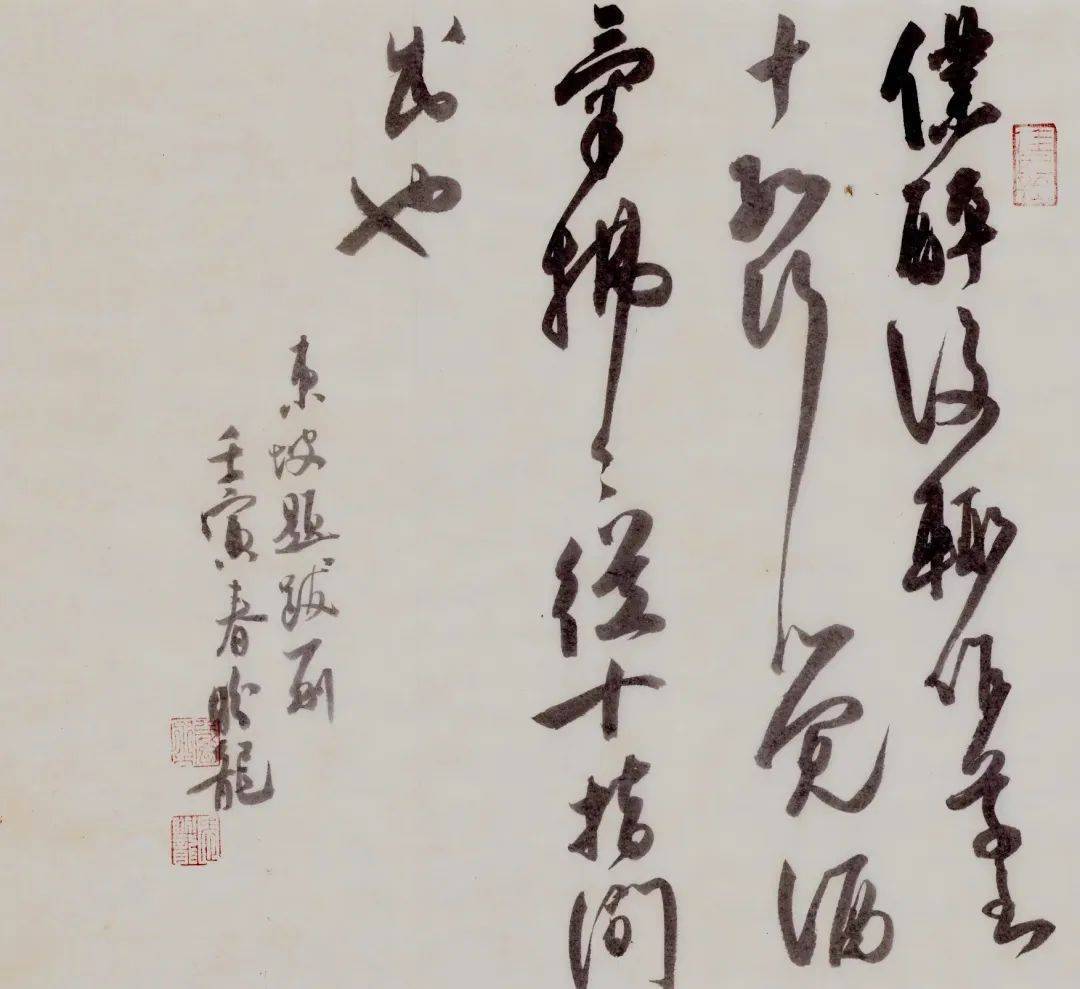 僕醉後輒作草書
十數行覺酒
氣拂々從十指間
出也
東坡題跋列
壬寅春 龍